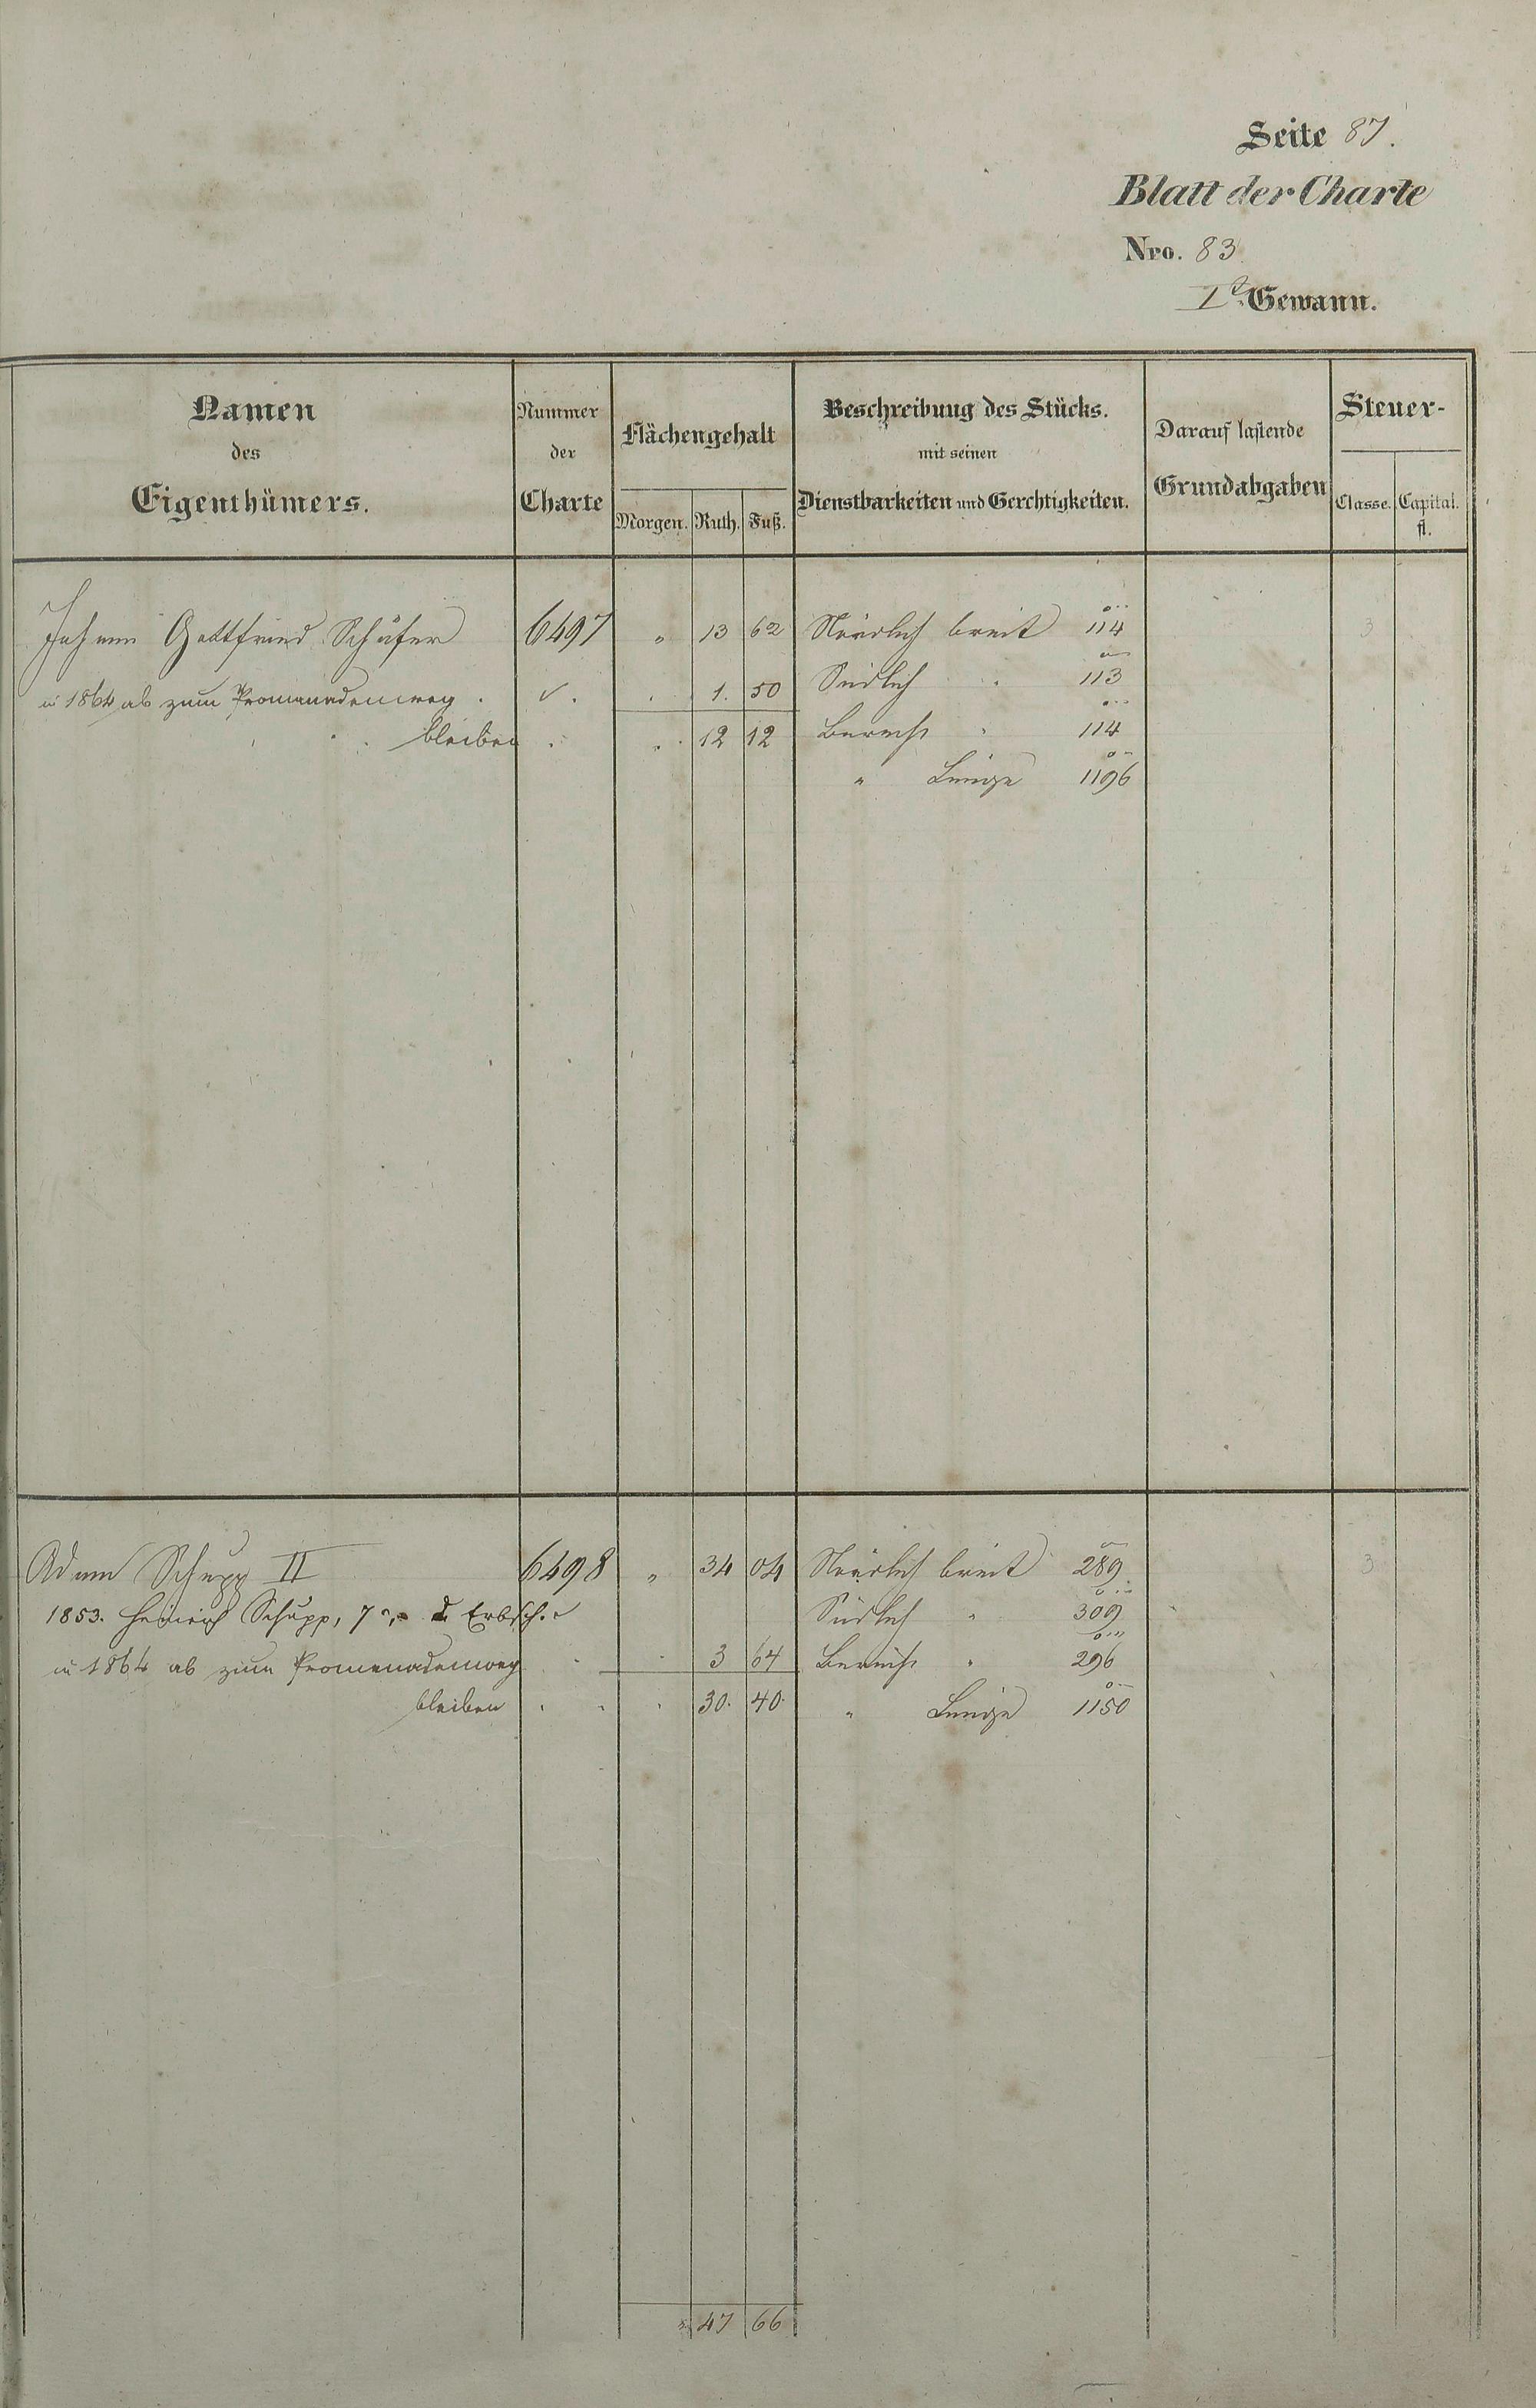 Seite 87.
Blatt der Charte
Nro. 83
Iᵉ Gewann.
Namen des Eigenthümers. | Nummer der Charte | Flächengehalt | Beschreibung des Stücks. mit seinen Dienstbarkeiten und Gerechtigkeiten. | Darauf lastende Grundabgaben | Steuer-
Morgen. | Ruth. | Fuß. | Classe. | Capital. fl.
Johann Gottfried Schäfer | 6497 | " | 13 | 62 | Nördlich breit 114 | 3
in 1864 ab zum Promenadenweg . | . | 1. | 50 | Südlich " 113
bleiben | " | 12 | 12 | Berechn " 114
" Länge 1196
Adam Schupp II | 6498 | " | 34 | 04 | Nördlich breit 289 | 3
1853. Heinrich Schupp, 7 d. Erbsch. | Südlich " 309
in 1864 ab zum Promenadenweg | 3 | 64 | Berechn " 296
bleiben | 30. | 40. | " Länge 1150
47 | 66